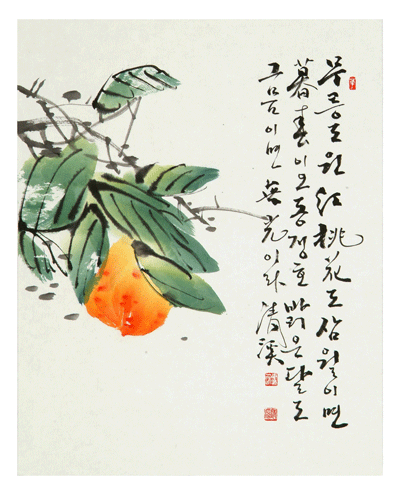 무릉도원 红桃花도 삼월이면
暮春이오 동정호 밝은 달도
그믐이면 無光이라 清溪